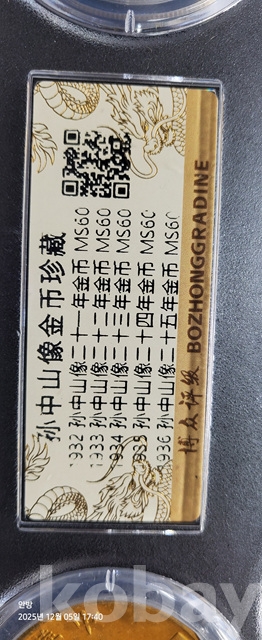 孙中山像金币珍藏
1932 孙中山像二十一年金币 MS60
1933 孙中山像二十二年金币 MS60
1934 孙中山像二十三年金币 MS60
1935 孙中山像二十四年金币 MS60
1936 孙中山像二十五年金币 MS60
博众评级 BOZHONGGRADINE
안방
2025년 12월 05일 17:40
kobay